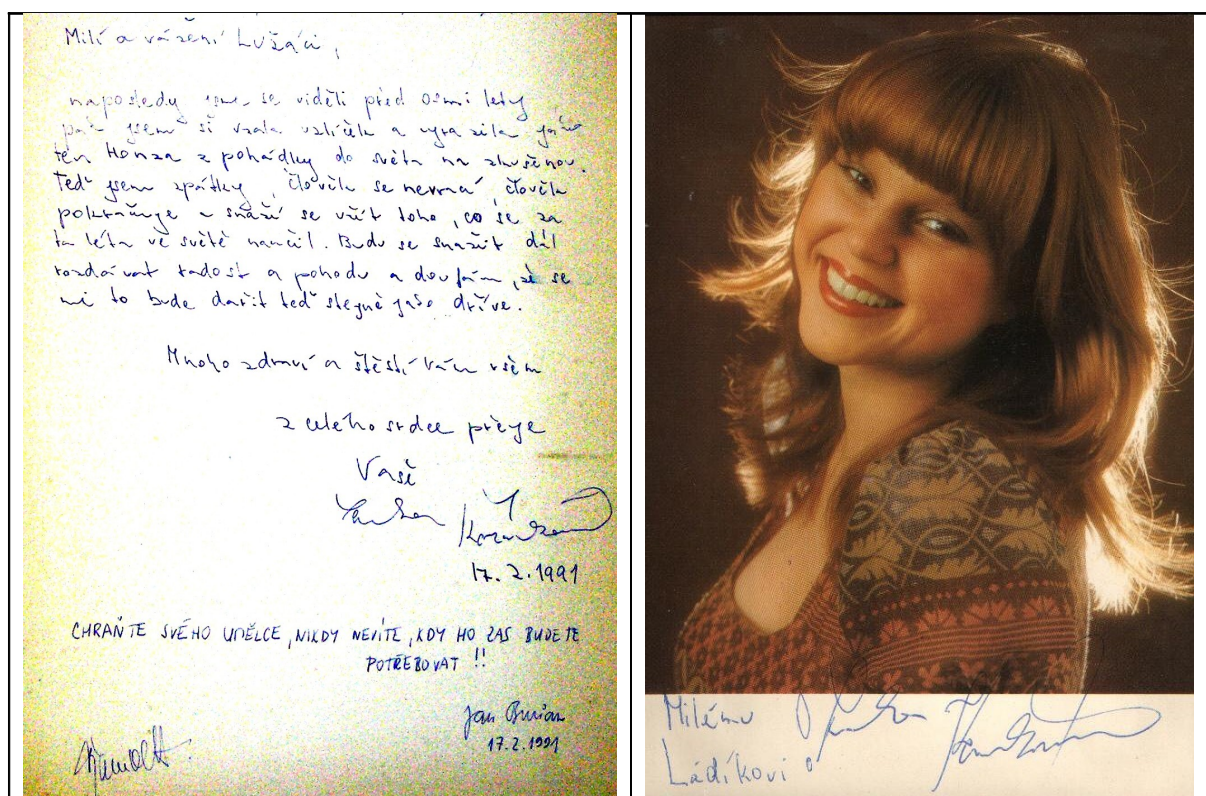 Milí a vážení Lužáci,
naposledy jsme se viděli před osmi lety
pak jsem si vzala uzlíček a vyrazila jako
ten Honza z pohádky do světa na zkušenou.
Teď jsem zpátky, člověk se nevrací, člověk
pokračuje a snaží se užít toho, co se za
ta léta ve světě naučil. Budu se snažit dál
rozdávat radost a pohodu a doufám, že se
mi to bude dařit teď stejně jako dříve.
Mnoho zdraví a štěstí Vám všem
z celého srdce přeje
Vaše
17. 2. 1991
CHRAŇTE SVÉHO UMĚLCE, NIKDY NEVÍTE, KDY HO ZAS BUDETE
POTŘEBOVAT !!
Jan Burian
17. 2. 1991
Milému
Ládíkovi